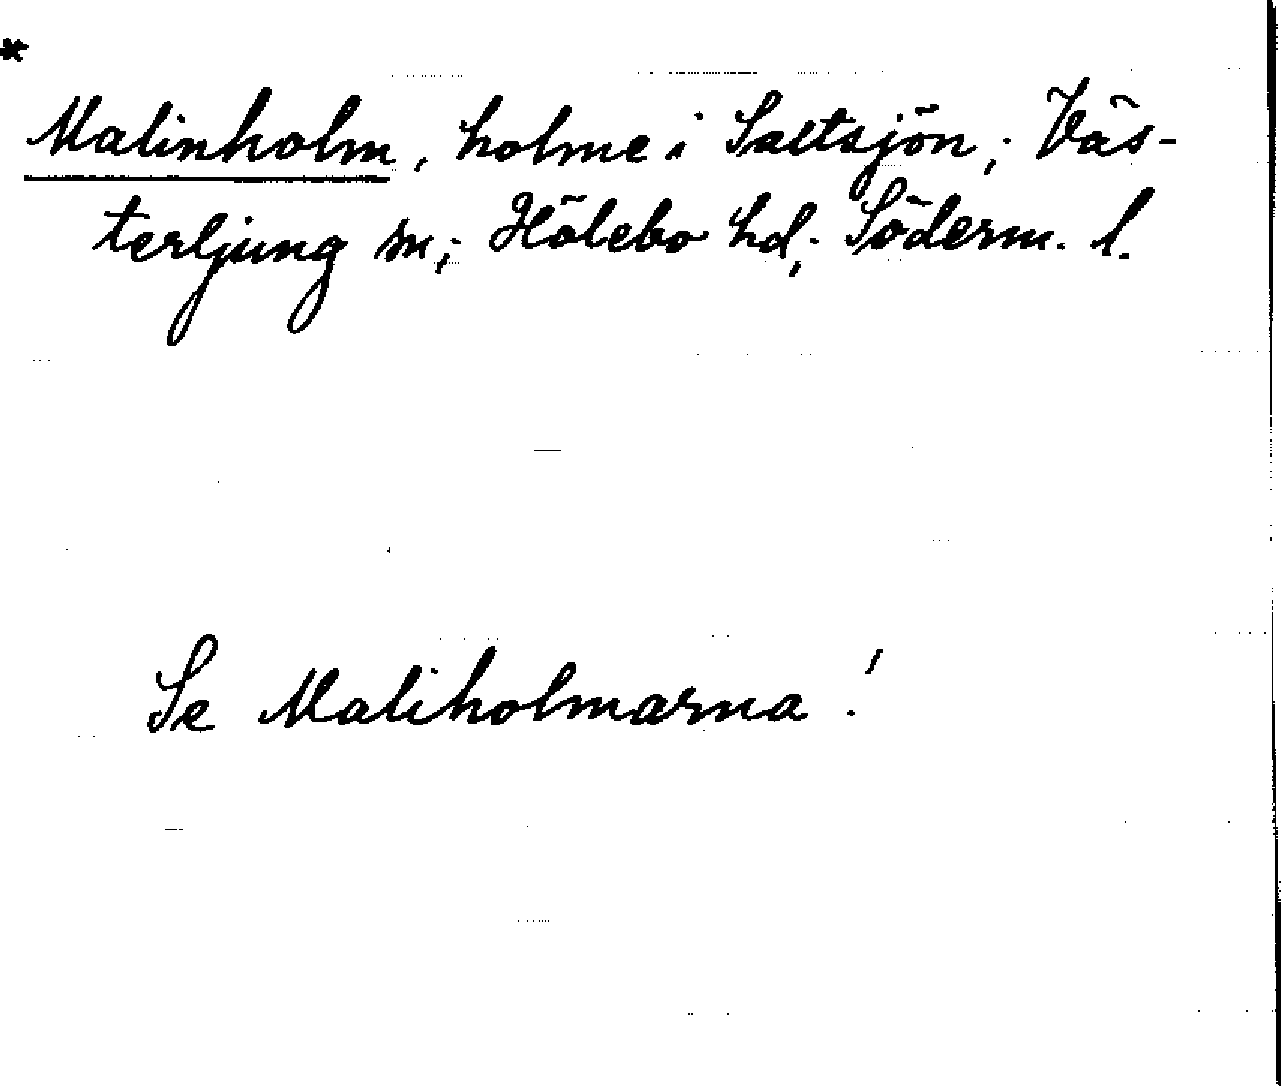 *
Malinholm, holme i Saltsjön; Väs-
terljung sn; Hölebo hd; Söderm. l.
Se Maliholmarna!